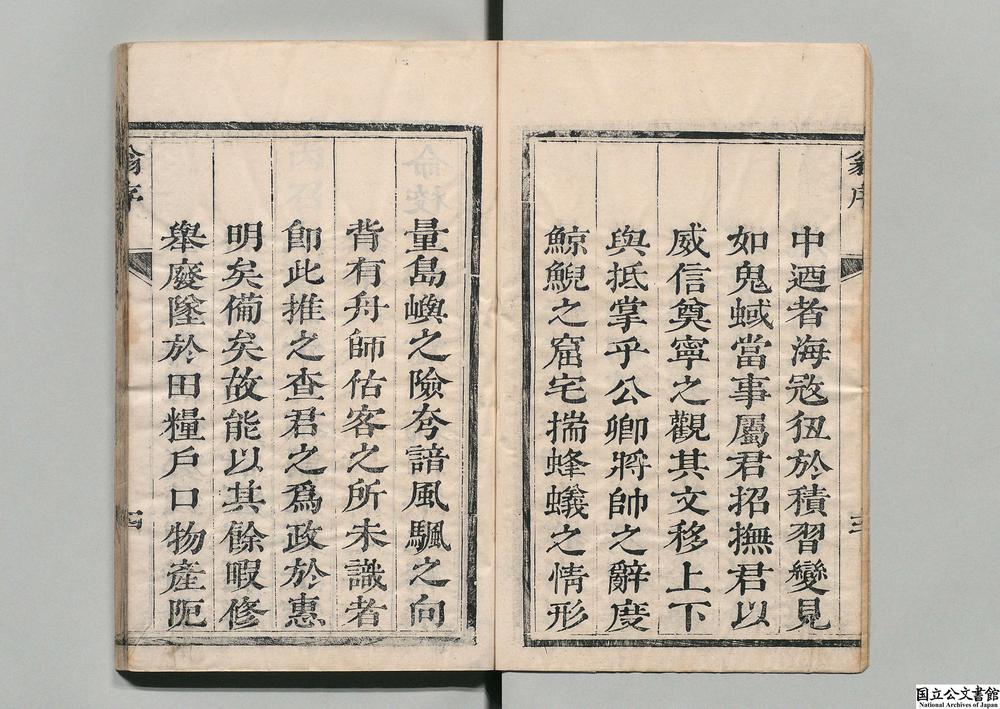 翁序
三
中迺者海宼狃於積習變見
如鬼蜮當事屬君招撫君以
威信奠寧之觀其文移上下
與抵掌乎公卿將帥之辭度
鯨鯢之窟宅揣蜂蟻之情形
量島嶼之險夸諳風颿之向
背有舟師估客之所未識者
卽此推之查君之爲政於惠
明矣備矣故能以其餘暇修
舉廢墜於田糧戶口物產阨
翁序
四
国立公文書館
National Archives of Japan